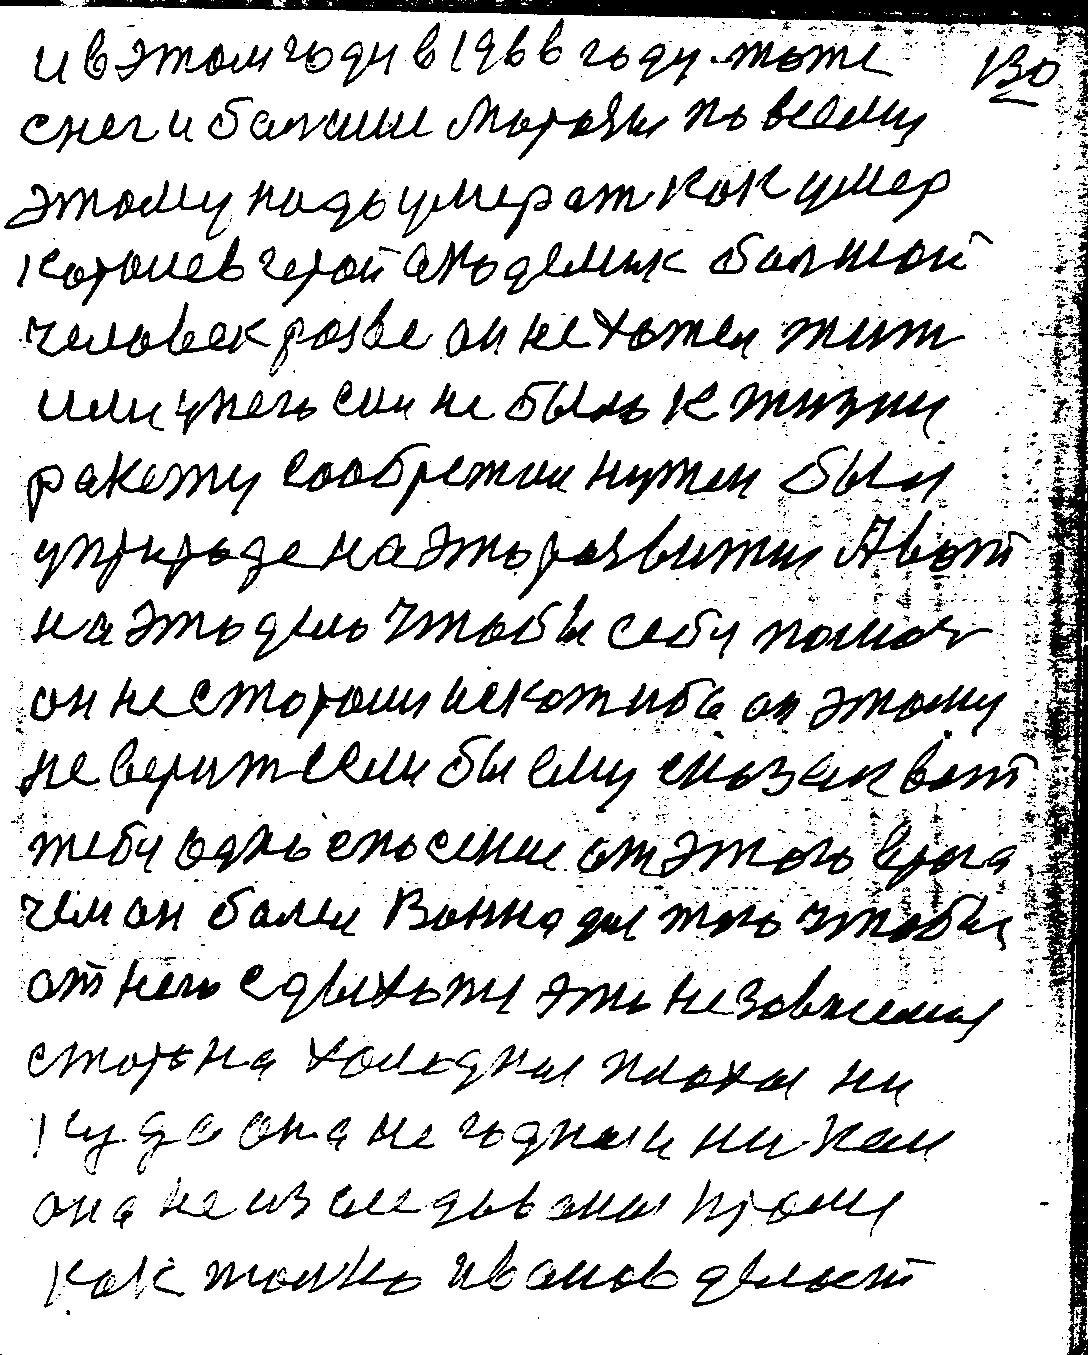 и в этом году в 1966 году. тоже 130
снег и балшие морозы по всему
этому надо умерат как умер
королев герой академик балшой
человек разве он не хотел жит
или у него сил не было к жизни
ракету сообретил нужен был
у природе на это развития А вот
на это дело чтобы себу помоч
он не сторонн искат иба он этому
не верит если бы ему сказал вот
тебу одно спосение от этого врага
чем он болел Ванна для того чтобы
от него сдыхати это незовисемая
сторона холодная плохая ни
куда она не годная и ни кем
она не изаледывоная кроме
как толко иванов делает